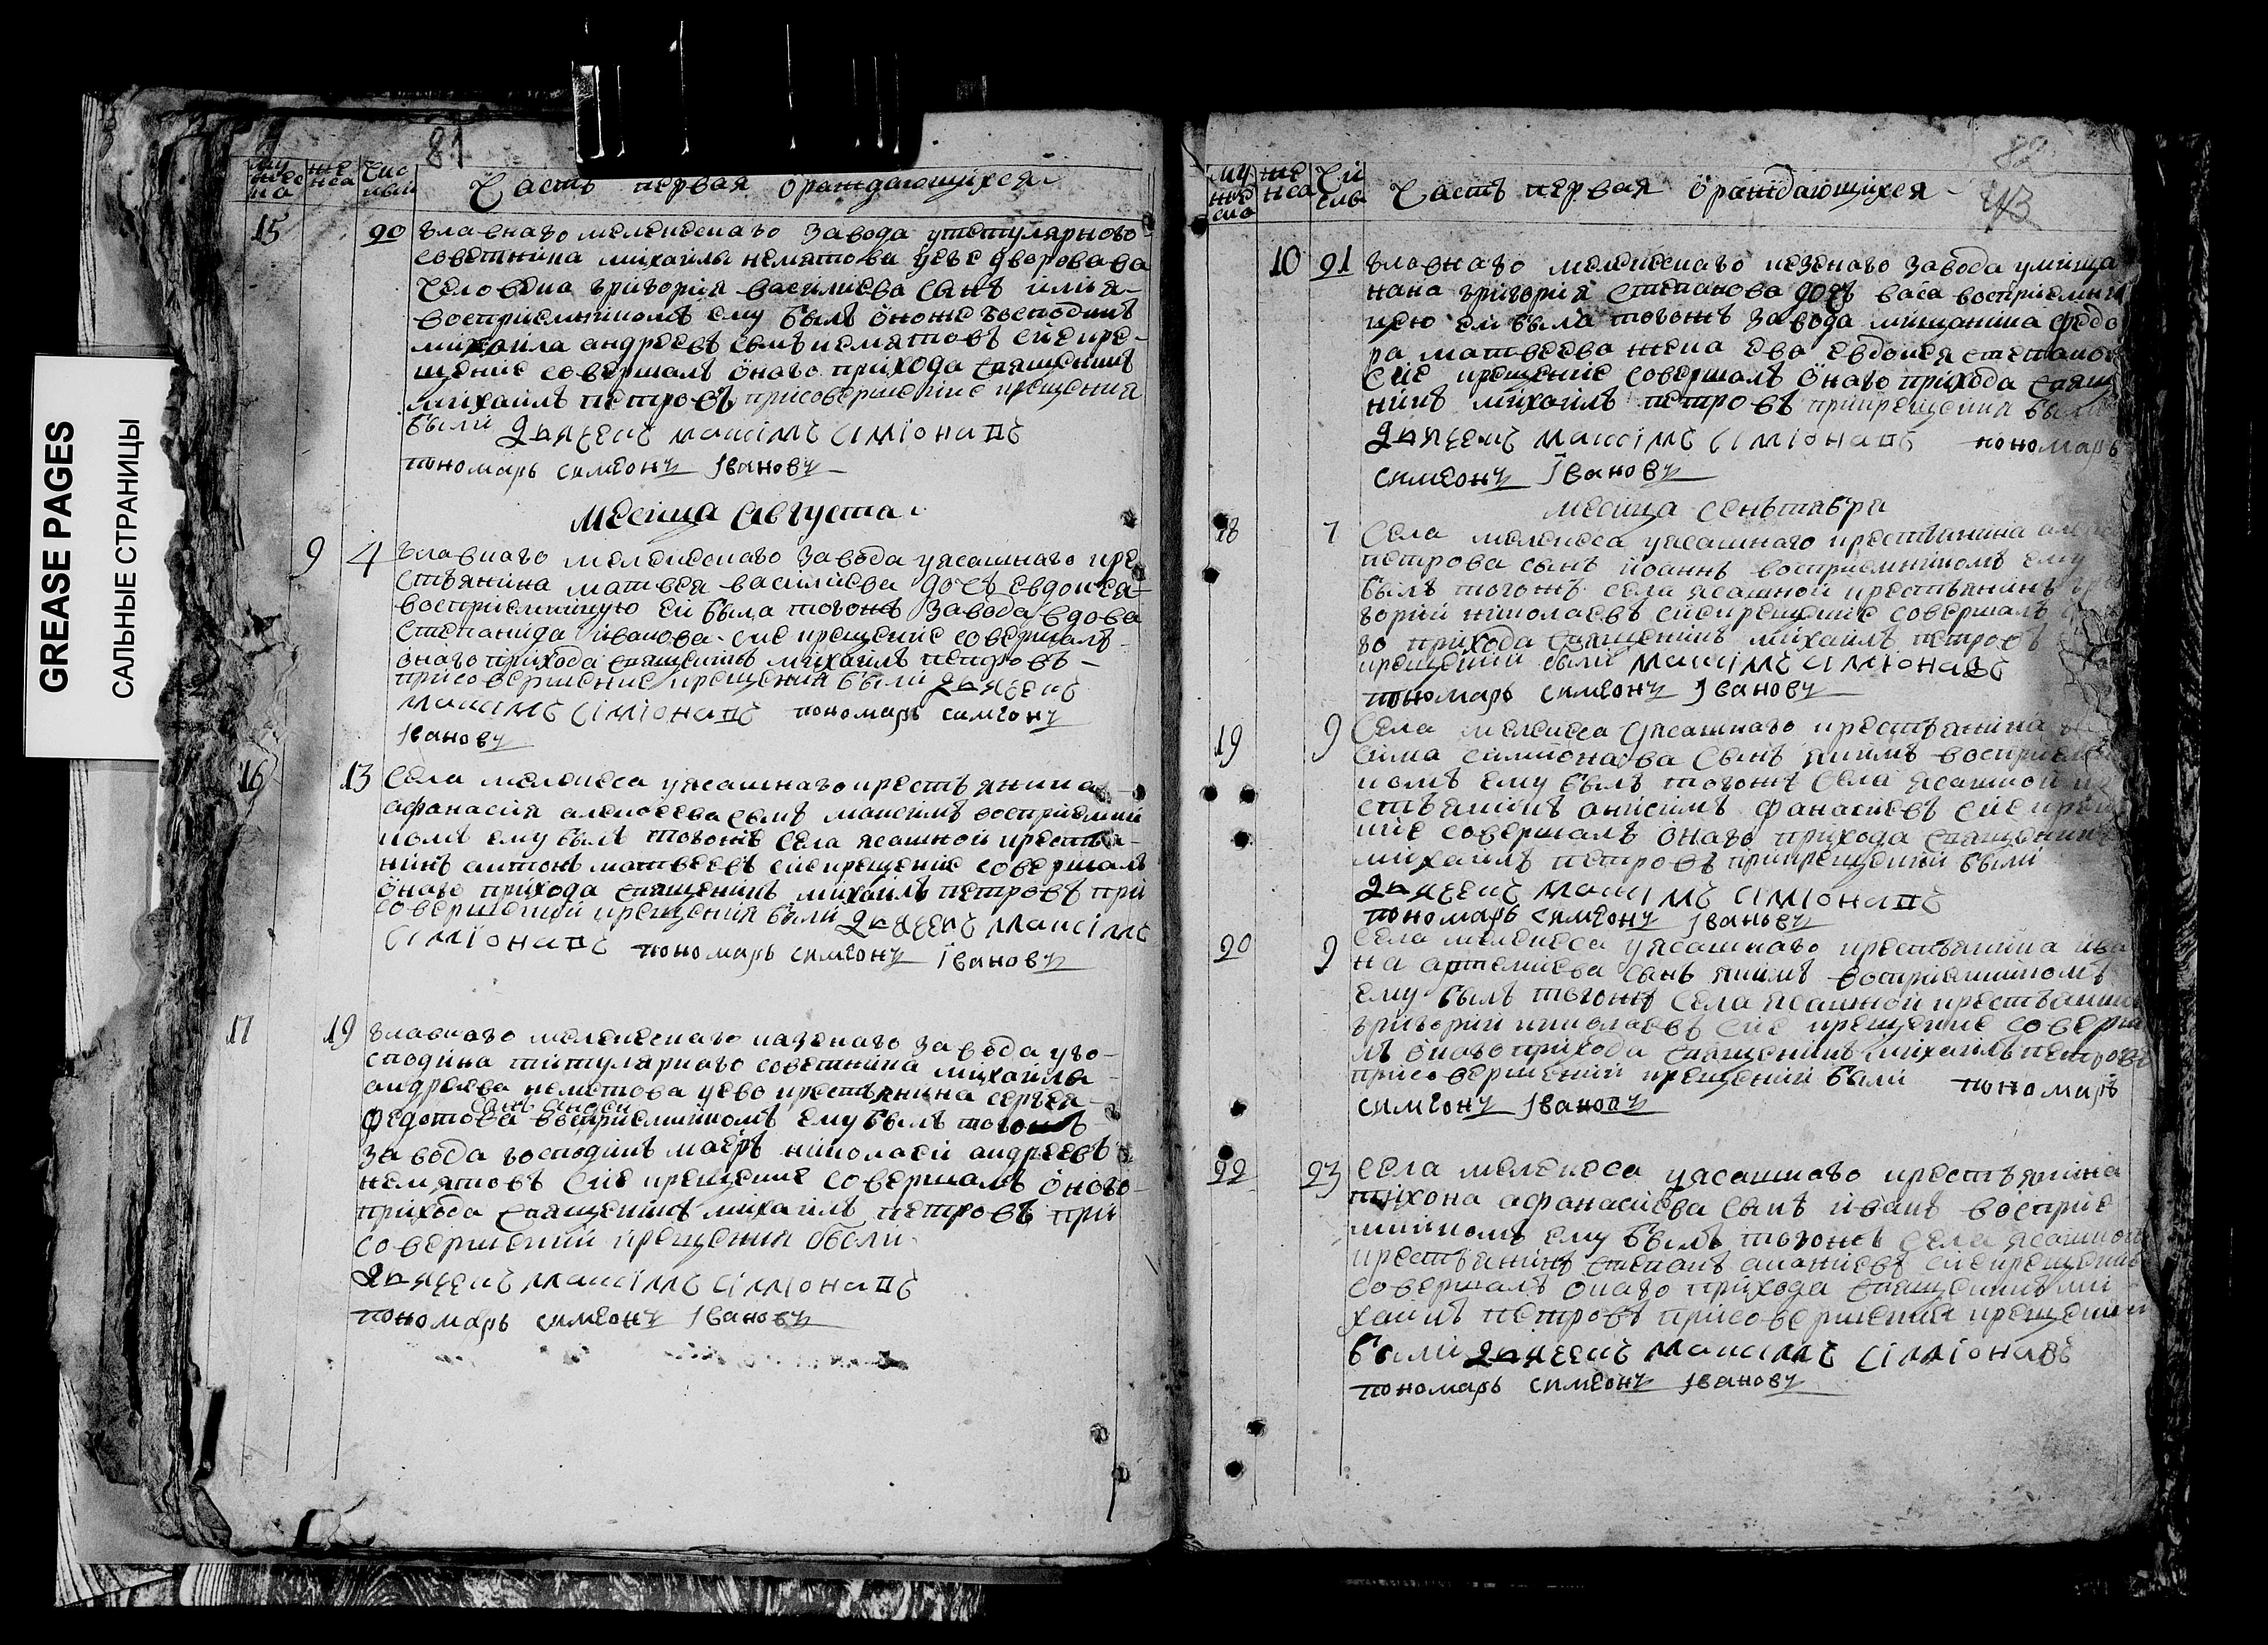 GREASE PAGES
САЛЬНЫЕ СТРАНИЦЫ
81
муж еска
женска
числы
Часть первая ораждающихся
15 20 главнаго мелекескаго завода утитулярного
советника михайлы нематова уеге дворовава
человека григория василиева сынъ илия
восприемникомъ ему былъ оноже господинъ
михайла андреевъ сынъ нематовъ сие кре
щение совершалъ онаго прихода священникъ
михаилъ петровъ присовершение крещения
были дьячекъ максимъ симионавъ
пономарь симеонъ Iвановъ
месица августа
9 4 главнаго мелекескаго завода уясашнаго кре
стьянина матвея василиева дочь евдокея
восприемницую ей была тогожъ завода вдова
степанида иванова сие крещение совершалъ
онаго прихода священникъ михаилъ петровъ
присовершение крещения были дьячекъ
максимъ симионавъ пономарь симеонъ
Iвановъ
16 13 села мелекеса уясашнаго крестьянина
афанасия алексеева сынъ максимъ восприемни
комъ ему былъ тогожъ села ясашной крестья
нинъ антонъ матвеевъ сие крещение совершалъ
онаго прихода священникъ михаилъ петровъ при
совершений крещения были дьячекъ максимъ
симионавъ пономарь симеонъ Iвановъ
17 19 главнаго мелекескаго казенаго завода уго
сподина титулярнаго советника михайлы
андреева нематова уево крестьянина сергея
сынъ
федотова восприемникомъ ему былъ тогожъ
завода господинъ маеръ николаей андреевъ
нематовъ сие крещение совершалъ оного
прихода священникъ михаилъ петровъ при
совершений крещения были
дьячекъ максимъ симионавъ
пономарь симеонъ Iвановъ
82
43
му жес ска
женска
числы
Часть первая ораждающихся
10 21 главнаго мелекескаго казенаго завода умеща
нина григория степанова дочь васа восприемни
цею ей была тогожъ завода мещанина федо
ра матвеева жена ева евдокея степанов
сие крещение совершалъ онаго прихода свящ
никъ михаилъ петровъ прикрещения были
дьячекъ максимъ симионавъ пономарь
симеонъ Iвановъ
месица сеньтабри
18 7 Села мелекеса уясашнаго крестьянина
петрова сынъ иоаннъ восприемникомъ ему
былъ тогожъ села ясашной крестьянинъ гри
горий николаевъ сие крещение совершалъ она
го прихода священникъ михаилъ петровъ
крещений были максимъ симионавъ
пономарь симеонъ Iвановъ
19 9 Села мелекеса уясашнаго крестьянина
сима симионава сынъ якимъ восприемни
комъ ему былъ тогожъ села ясашной кре
стьянинъ анисимъ фанасиевъ сие креще
ние совершалъ онаго прихода священникъ
михаилъ петровъ прикрещений были
дьячекъ максимъ симионавъ
пономарь симеонъ Iвановъ
20 9 Села мелекеса уясашнаго крестьянина ива
на артемиева сынъ якимъ восприемникомъ
ему былъ тогожъ села ясашной крестьянинъ
григорий николаевъ сие крещение соверша
лъ онаго прихода священникъ михаилъ петровъ
присовершений крещений были пономарь
симеонъ Iвановъ
22 23 Села мелекеса уясашнаго крестьянина
тихона афанасиева сынъ иванъ восприе
мникомъ ему былъ тогожъ села ясашной
крестьянинъ степанъ ананиевъ сие крещение
совершалъ онаго прихода священникъ ми
хаилъ петровъ присовершений крещений
были дьячекъ максимъ симионавъ
пономарь симеонъ Iвановъ